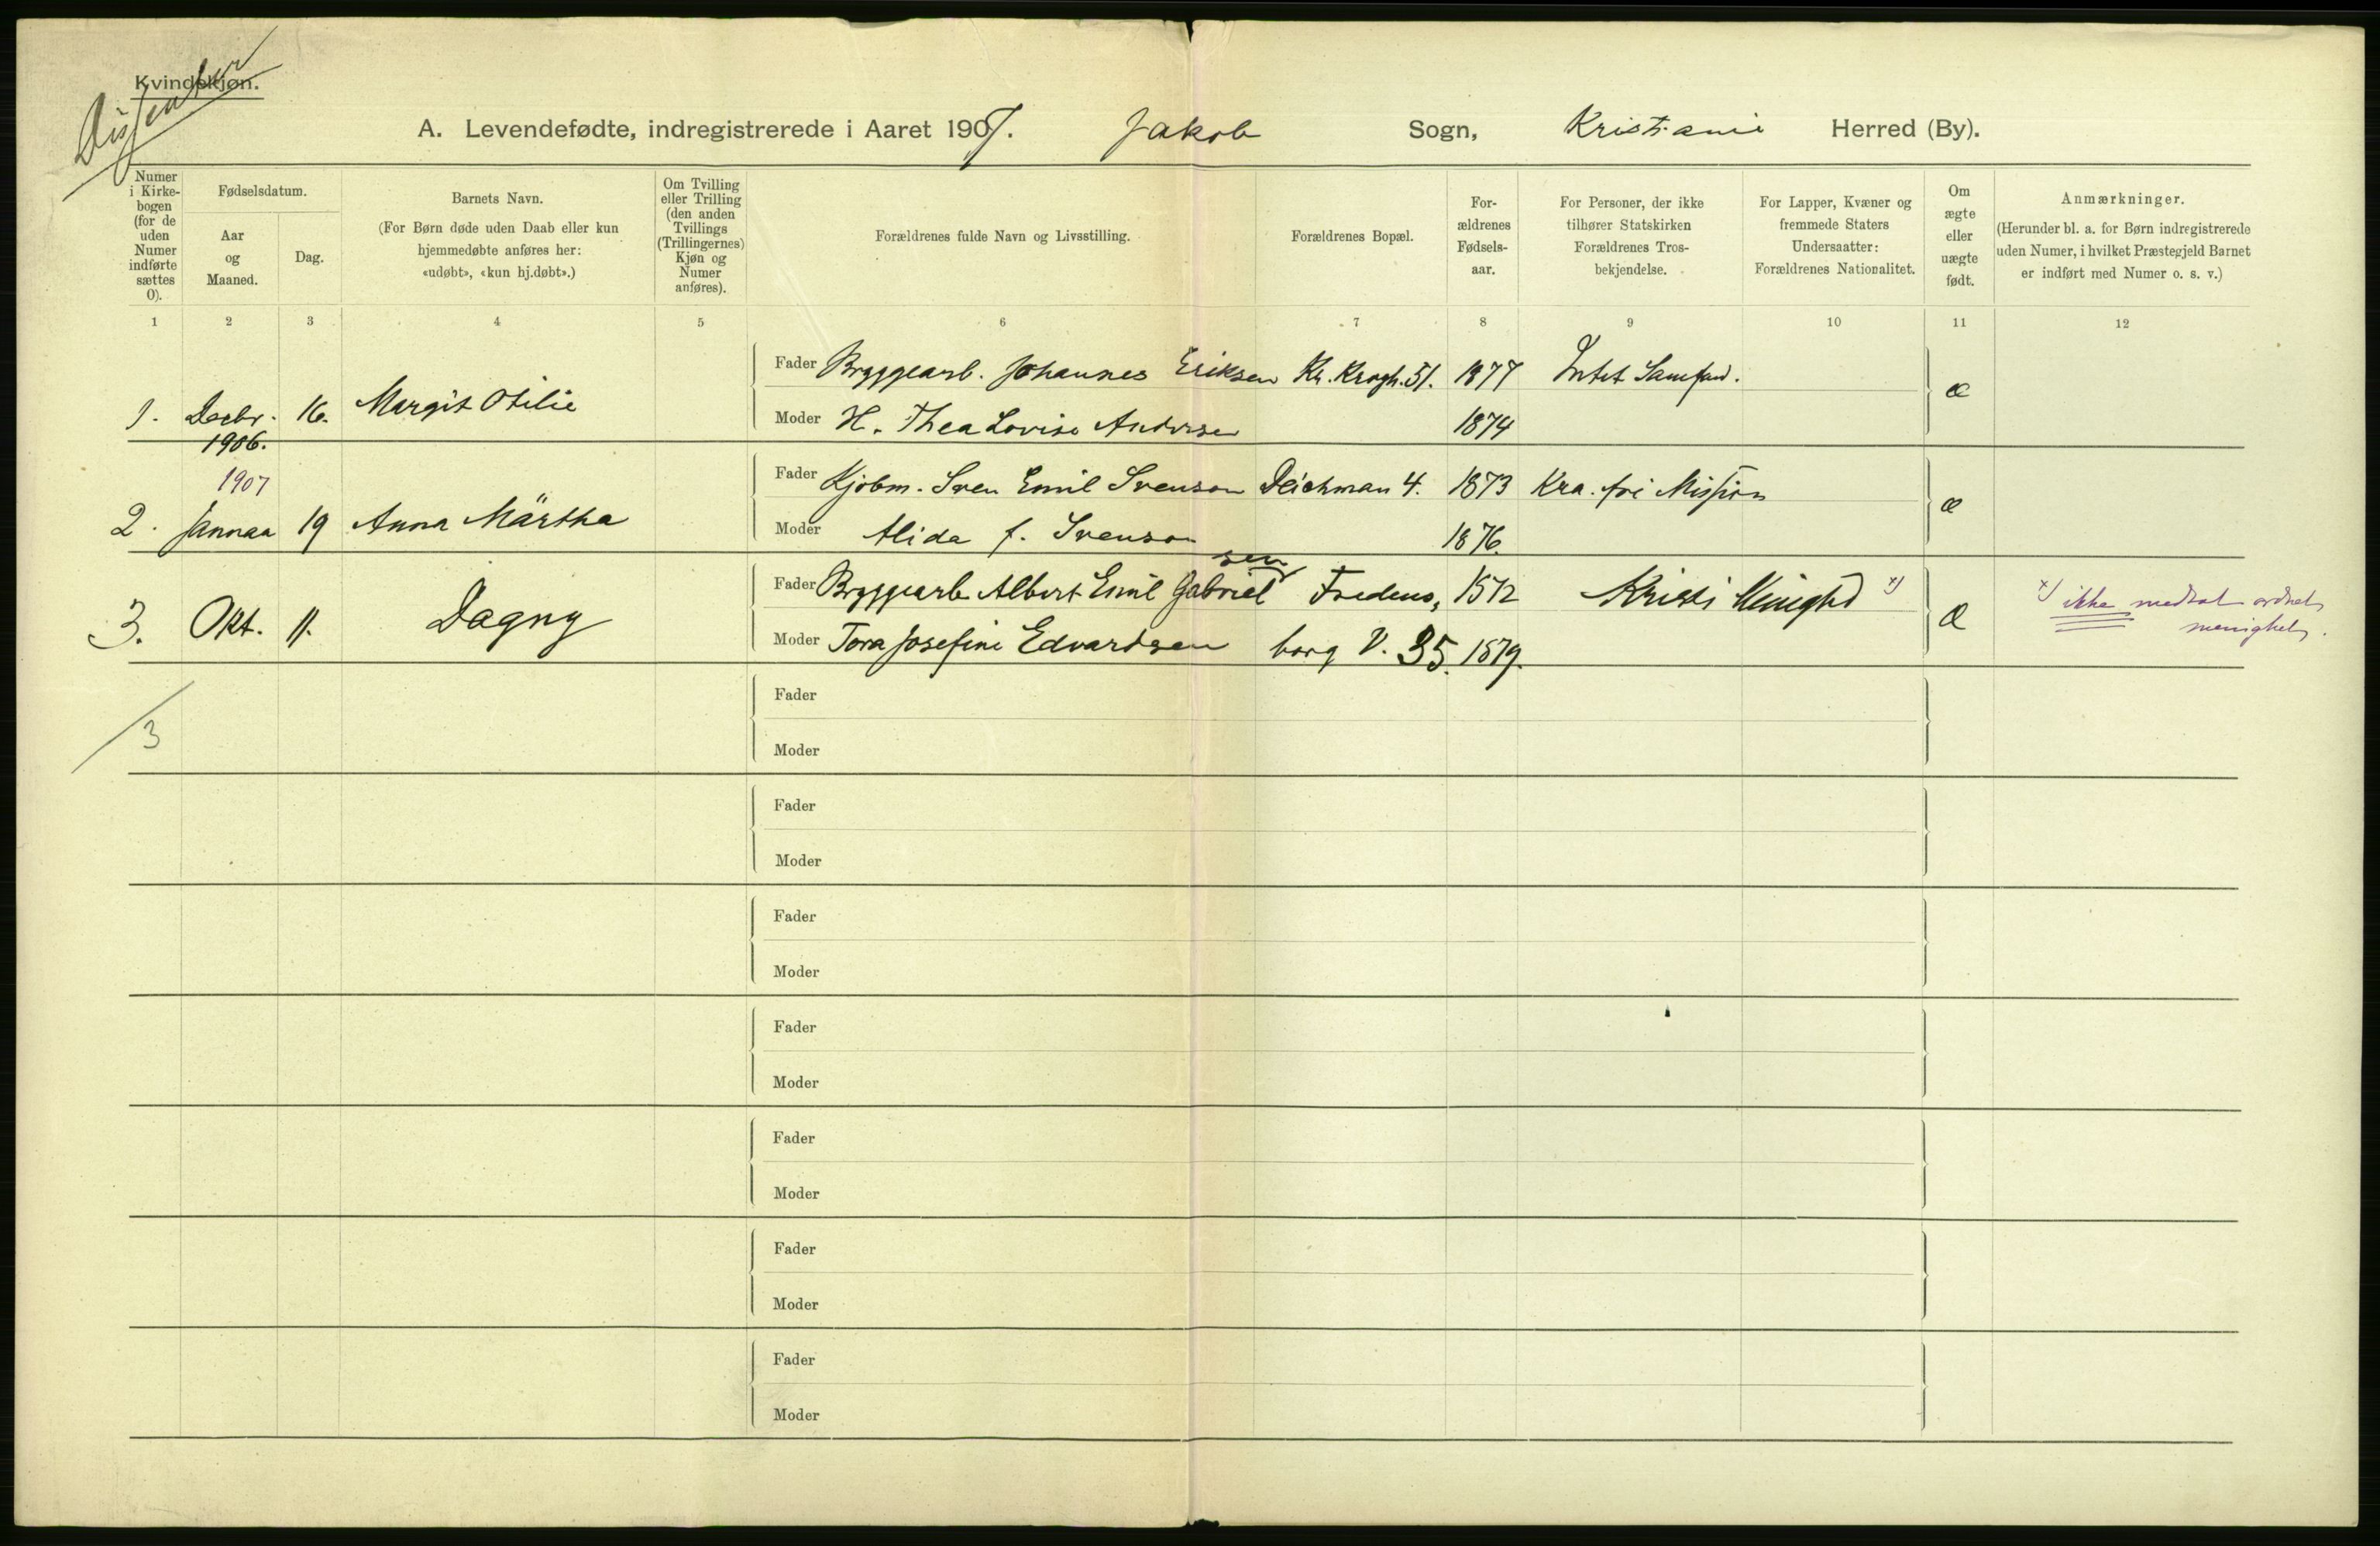 Kvindekjøn.
Dissenter
A. Levendefødte, indregistrerede i Aaret 1907. Jakob Sogn, Kristiania Herred (By).
Numer i Kirkebogen (for de uden Numer indførte sættes 0).
Fødselsdatum.
Aar og Maaned.
Dag.
Barnets Navn.
(For Børn døde uden Daab eller kun hjemmedøbte anføres her: «udøbt», «kun hj.døbt».)
Om Tvilling eller Trilling (den anden Tvillings (Trillingernes) Kjøn og Numer anføres).
Forældrenes fulde Navn og Livsstilling.
Forældrenes Bopæl.
For- ældrenes Fødsels- aar.
For Personer, der ikke tilhører Statskirken Forældrenes Tros- bekjendelse.
For Lapper, Kvæner og fremmede Staters Undersaatter: Forældrenes Nationalitet.
Om ægte eller uægte født.
Anmærkninger.
(Herunder bl. a. for Børn indregistrerede uden Numer, i hvilket Præstegjeld Barnet er indført med Numer o. s. v.)
1 2 3 4 5 6 7 8 9 10 11 12
Fader Bryggearb. Johannes Eriksen Kr. Krogh. 51. 1877 Intet Samfund.
1. Decbr. 16. Margit Otilie æ
1906.
Moder H. Thea Lovise Andersen 1874
1907
Fader Kjøbm. Sven Emil Svenson Deichman 4. 1873 Kra. fri Mission
2. Januar 19 Anna Märtha æ
Moder Alida f. Svenson 1876.
sen
Fader Bryggearb Albert Emil Gabriel Fredens- 1872 Kristi Menighed x)
3. Okt. 11. Dagny æ
x) ikke medtat ordnet menighet.
Moder Tora Josefine Edvardsen borg V. 35. 1879.
3
Fader
Moder
Fader
Moder
Fader
Moder
Fader
Moder
Fader
Moder
Fader
Moder
Fader
Moder